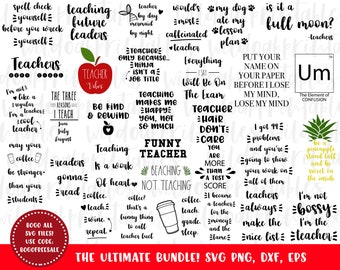 spell check
yourself
before you wreck
yourself
teaching
future
leaders
teacher
by day
mermaid
by night
world's
most
caffeinated
teacher
my dog
ate my
lesson
plan
is it a
full moon?
Teachers
I'm not
like a
regular
teacher
I'm a
cool
teacher
TEACHER
Vibes
THE THREE
REASONS
I TEACH
june
july
august
BE KIND
& REWIND
TEACHER
ONLY BECAUSE
NINJA
ISN'T A
JOB TITLE
TEACHING
MAKES ME
HAPPY
YOU, NOT
SO MUCH
Everything
Will Be On
The Exam
TEACHER
HAIR
DON'T
CARE
PUT YOUR
NAME ON
YOUR PAPER
BEFORE I LOSE
MY MIND,
LOSE MY MIND
Um
The Element of
CONFUSION
may your
coffee
be stronger
than your
students
readers
gonna
read
Teaching
Is a work
Of heart
FUNNY
TEACHER
BEACHING
NOT TEACHING
YOU
ARE
MORE
THAN A
TEST
SCORE
I got 99
problems
and you're
going to show
your work on
all of them
BOGO ALL
SVG FILES!
USE CODE:
BOGOPRESALE
coffee
teach
wine
repeat
coffee!
that's a
funny thing
to call
teacher fuel
coffee
teach
sleep
I became a
teacher for
the money
and fame
teachers
always
make the
nice list
I'm not
bossy
I'm the
teacher
THE ULTIMATE BUNDLE! SVG PNG, DXF, EPS